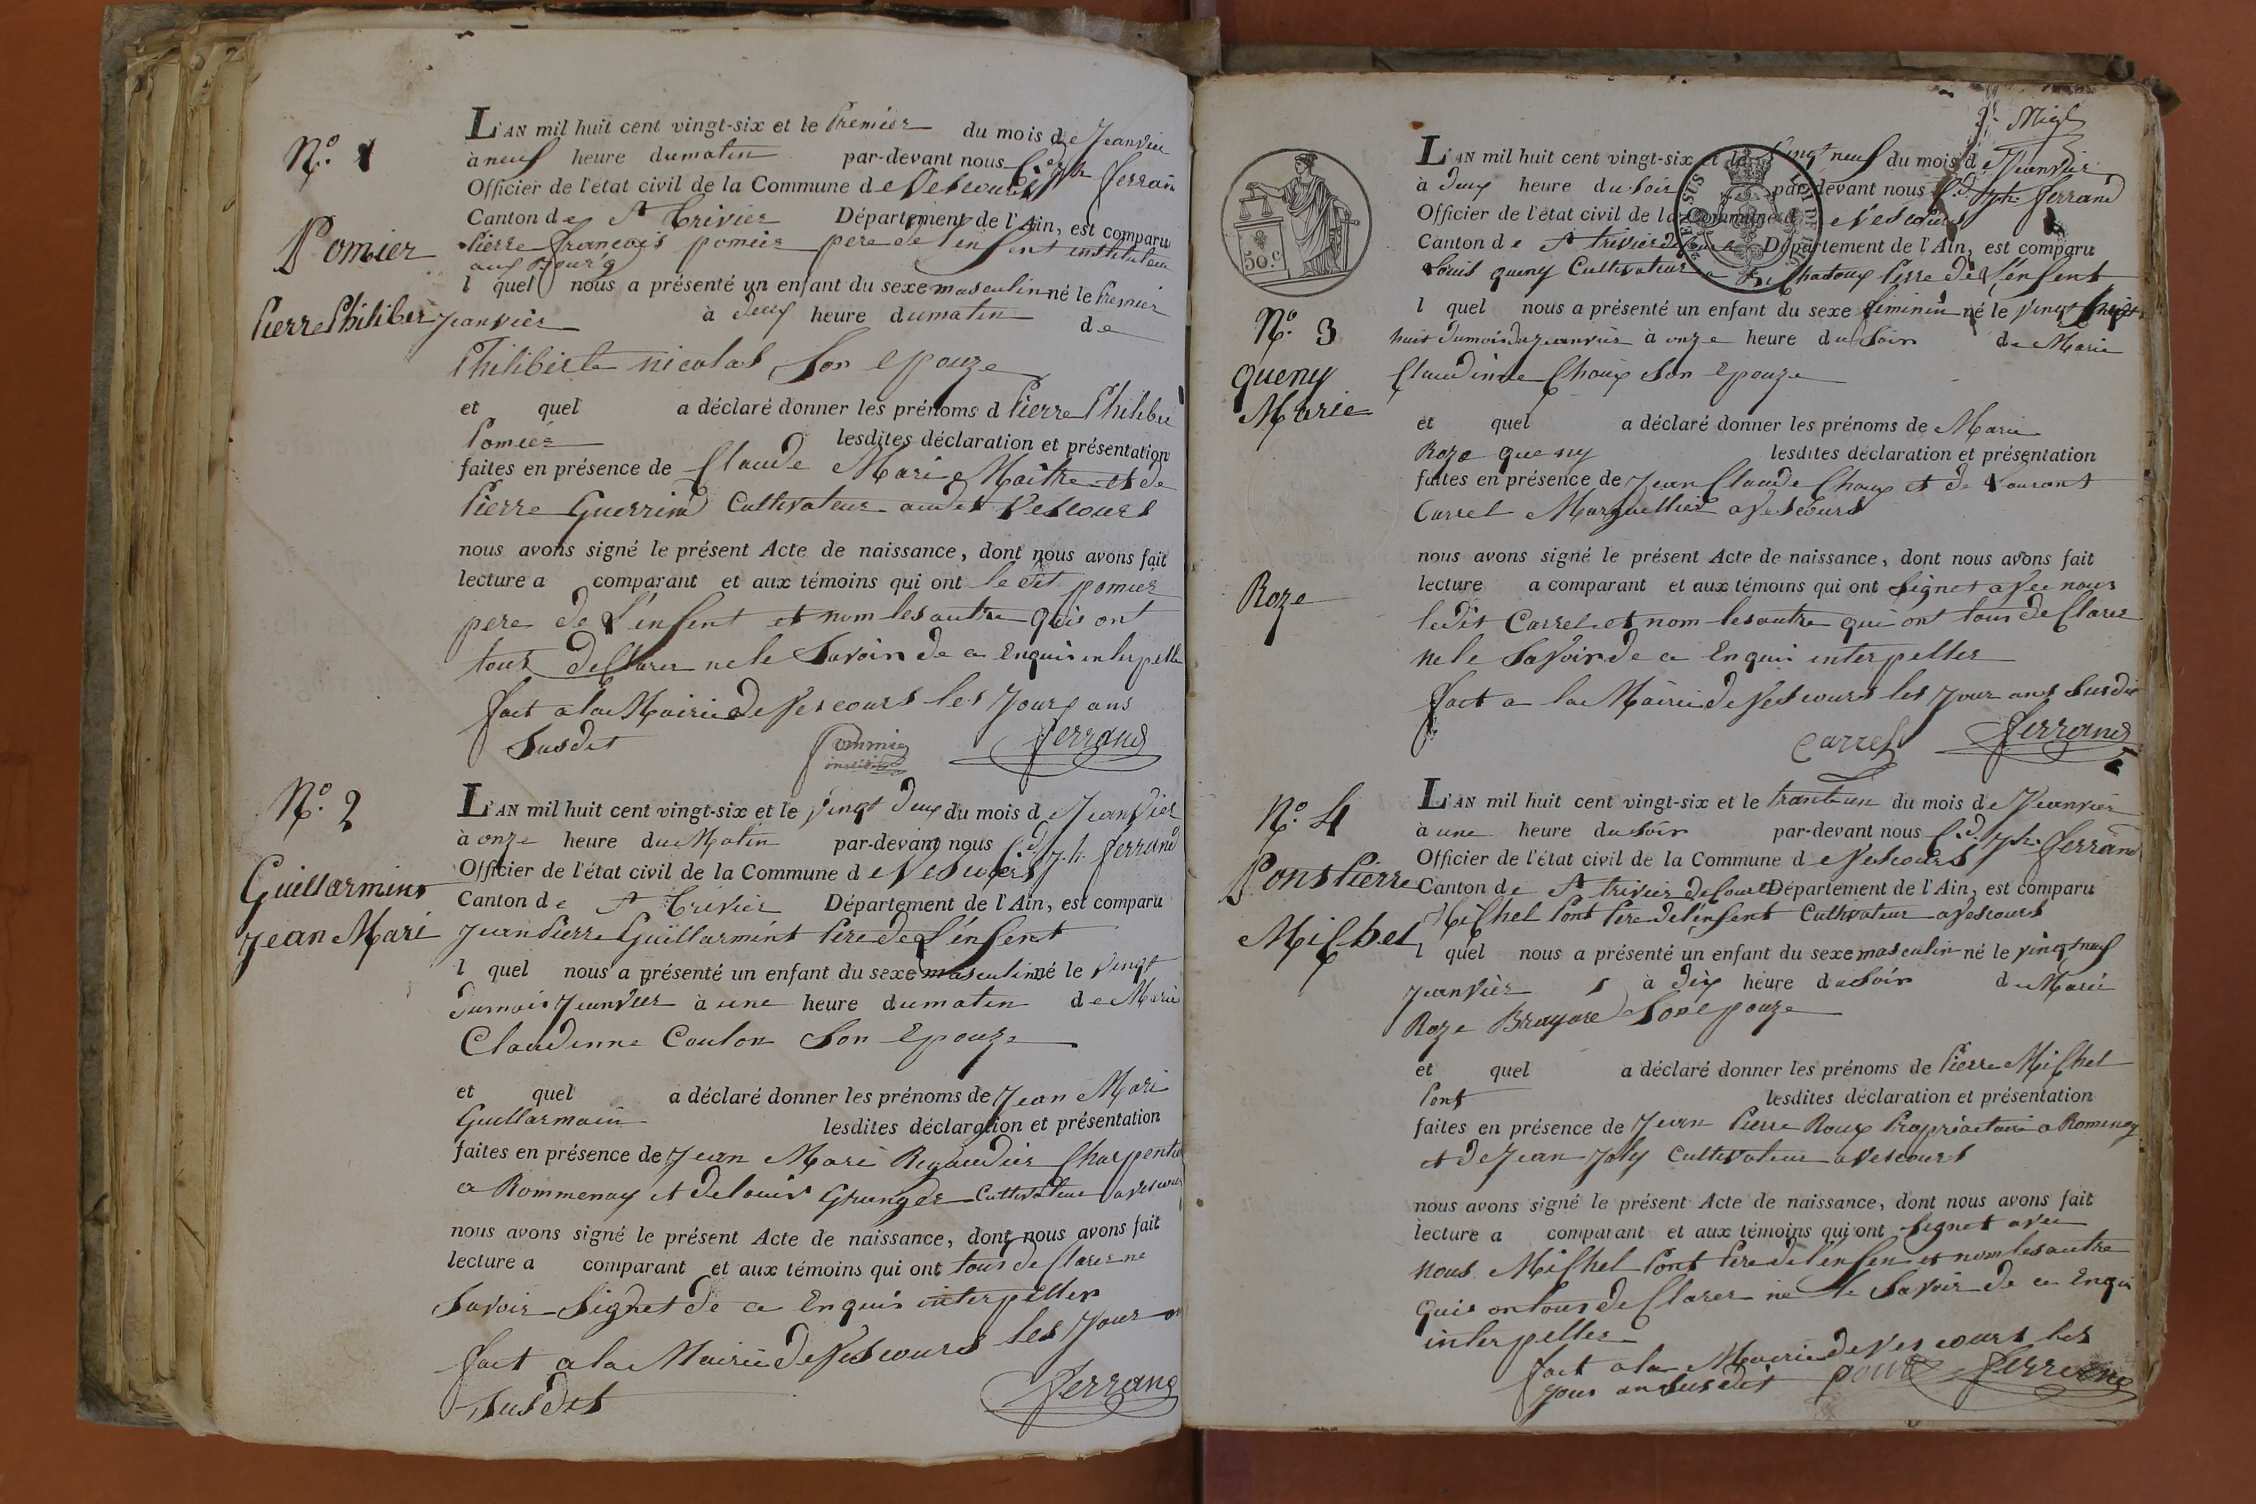 N.º 1
Pomier
Pierre Philiber
L'AN mil huit cent vingt-six et le Premier du mois de Jeanvier
à neuf heure du matin par-devant nous C.de Jph ferrand
Officier de l'état civil de la Commune de Vescours
Canton de St Trivier Département de l'Ain, est comparu
Pierre françois pomier pere de l'enfent instituteur
aux Bourg
l quel nous a présenté un enfant du sexe masculin né le Premier
Jeanvier à deux heure du matin de
Philiberte nicolas Son epouze
et quel a déclaré donner les prénoms d Pierre Philiber
Pomier lesdites déclaration et présentation
faites en présence de Claude Marie Maitre et de
Pierre Guerrin Cultivateur audit Vescours
nous avons signé le présent Acte de naissance, dont nous avons fait
lecture a comparant et aux témoins qui ont le dit pomier
pere de l'enfent et nom les autre quis ont
tous deClarer ne le Savoir de ce Enquis interpelle
fait a la Mairie de Vescours les Jour ans
Susdit Pommier ferrand
N.º 2
Guillarmint
Jean Mari
L'AN mil huit cent vingt-six et le vingt deux du mois de Jeanvier
à onze heure du Matin par-devant nous C.d Jph ferrand
Officier de l'état civil de la Commune de Vescours
Canton de St Trivier Département de l'Ain, est comparu
Jean Pierre Guillarmint Pere de L'enfent
l quel nous a présenté un enfant du sexe masculin né le Vingt
dumois Jeanvier à une heure du matin de Marie
Claudinne Coulon Son epouze
et quel a déclaré donner les prénoms de Jean Mari
Guillarmain lesdites déclaration et présentation
faites en présence de Jean Mari Rigaudier Charpentie
a Rommenay et de louis Grunder Cultivateur a Vescours
nous avons signé le présent Acte de naissance, dont nous avons fait
lecture a comparant et aux témoins qui ont tous deClarer ne
Savoir Signet de ce Enquis interpeller
fait a la Mairie de Vescours les Jour an
Susdit ferrand
50.C
N.º 3
Queny
Marie
Roze
L'AN mil huit cent vingt-six et le Vingt neuf du mois de Jeanvier
à deux heure du Soir par-devant nous C.d Jph ferrand
Officier de l'état civil de la Commune de Vescours
Canton de St trivier de Département de l'Ain, est comparu
Louis queny Cultivateur a Chatoux Perre de L'enfent
l quel nous a présenté un enfant du sexe feminin né le vingt
huit dumois de Jeanvier à onze heure du Soir de Marie
Claudinne Choux Son Epouze
et quel a déclaré donner les prénoms de Marie
Roze queny lesdites déclaration et présentation
faites en présence de Jean Claude Choux et de Lourant
Carrel Marguellier a Vescours
nous avons signé le présent Acte de naissance, dont nous avons fait
lecture a comparant et aux témoins qui ont Signet avec nous
ledit Carrel et nom les autre qui ont tous deClarer
ne le Savoir de ce Enquis interpeller
fait a la Mairie de Vescours les Jour ans Susdit
Carrel ferrand
N.º 4
Pont Pierre
Michel
L'AN mil huit cent vingt-six et le tranteun du mois de Jeanvier
à une heure du Soir par-devant nous C.d. Jph. ferrand
Officier de l'état civil de la Commune de Vescours
Canton de St trivier de Courtes Département de l'Ain, est comparu
Michel Pont Pere de l'enfent Cultivateur a Vescours
l quel nous a présenté un enfant du sexe masculin né le vingt neuf
Jeanvier à dix heure du Soir de Marie
Roze Brayare Son epouze
et quel a déclaré donner les prénoms de Pierre Michel
Pont lesdites déclaration et présentation
faites en présence de Jean Pierre Roux Propriaetaire a Romenay
et de Jean Joly Cultivateur a Vescours
nous avons signé le présent Acte de naissance, dont nous avons fait
lecture a comparant et aux témoins qui ont Signet avec
nous Michel Pont Pere de l'enfen et nom les autre
quis on tous deClarer ne le Savoir de ce Enqui
interpeller
fait a la Mairie de Vescours les
Jour an Susdit pont ferrand